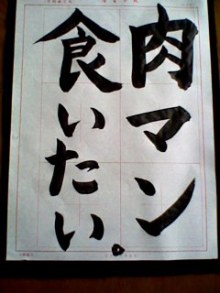 肉マン
食いたい。